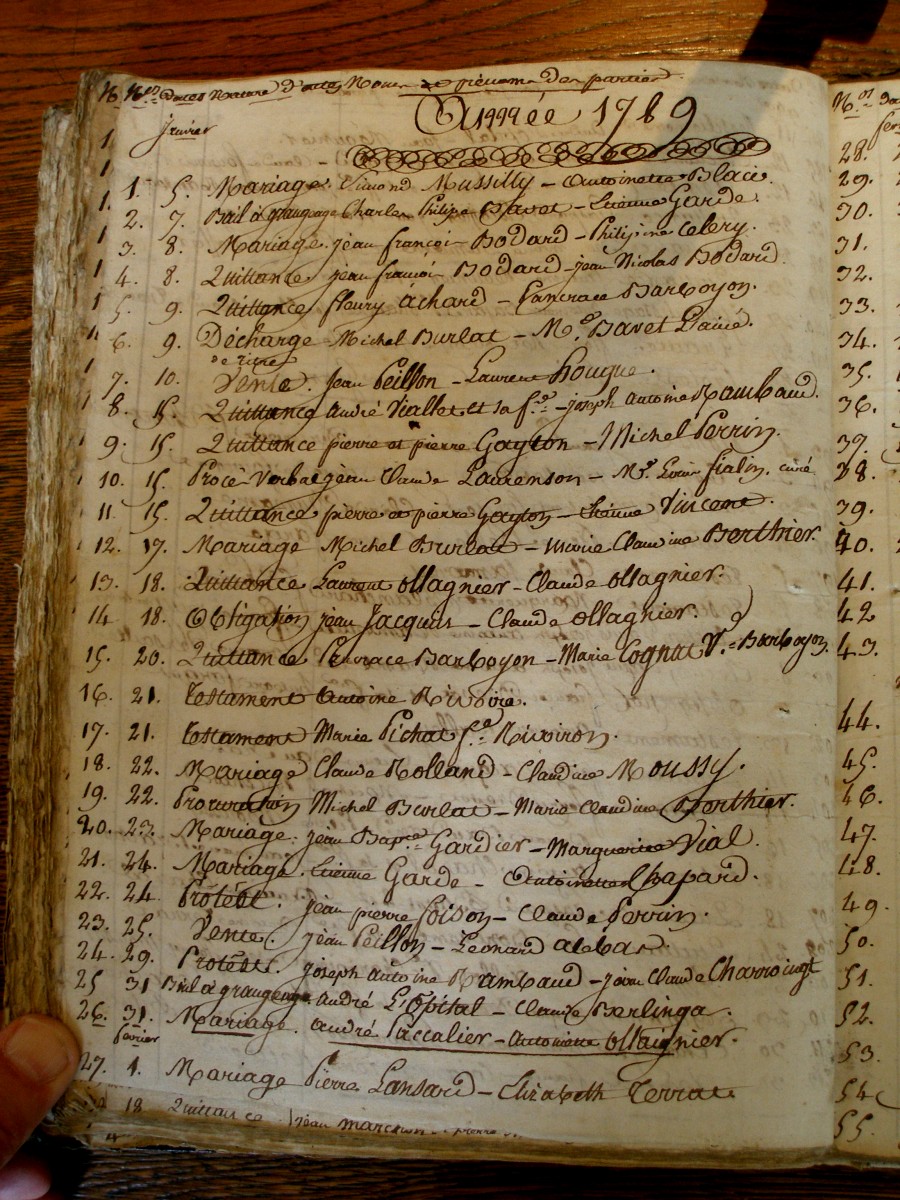 N.os dates Nature d'actes Noms et prénoms des parties.
Année 1789
janvier
1. 5. Mariage. Simond Mussilly - Antoinette Place.
2. 7. Bail à grangeage Charles Philipe Bavet - Etienne Garde.
3. 8. Mariage. jean françois Bodard - Philipine Celery.
4. 8. Quittance jean françois Bodard - jean Nicolas Bodard.
5. 9. Quittance fleury achard - Pancrace Barboyon.
6. 9. Décharge Michel Burlat - Me. Bavet L'ainé.
de titres
7. 10. Vente. Jean Peillon - Laurent
8. 15. Quittance andré Viallet et sa fe. - joseph antoine Rambaud.
9. 15. Quittance pierre et pierre Gayton - Michel Perrin.
10. 15. Procè Verbal jean Claude Laurenson - Mr. Louis fialin. curé
11. 15. Quittance pierre et pierre Gayton - Etienne Vincent.
12. 17. Mariage Michel Burlat - Marie Claudine Berthier.
13. 18. Quittance Laurent ollagnier - Claude ollagnier.
14 18. Obligation jean Jacques - Claude ollagnier.
15. 20. Quittance Pancrace Barboyon - Marie Cognat Ve. Barboyon.
16. 21. testament Antoine Rivoire.
17. 21. testament Marie Pichat fe. Rivoiron.
18. 22. Mariage Claude Rolland - Claudine Moussy.
19. 22. Procuration Michel Burlat - Marie Claudine Berthier.
20. 23. Mariage. jean Bapte. Gardier - Marguerite Vial.
21. 24. Mariage. Etienne Garde - Antoinette Chapard.
22. 24. Protêt. jean pierre Loison - Claude Perrin.
23. 25. Vente. jean Peillon - Leonard
24. 29. Protêt. joseph antoine Rambaud - jean Claude
25 31 Bail à grangeage andré L'Opital - Claude Berlinga.
26. 31. Mariage. andré Paccalier - Antoinette Ollaignier.
février
27. 1. Mariage Pierre Lansard - Elizabeth Terrat.
18 Quittance jean
N.os
28.
29.
30.
31.
32.
33.
34.
35.
36.
37.
38.
39.
40.
41.
42
43.
44.
45.
46.
47.
48.
49.
50.
51.
52.
53.
54
55.